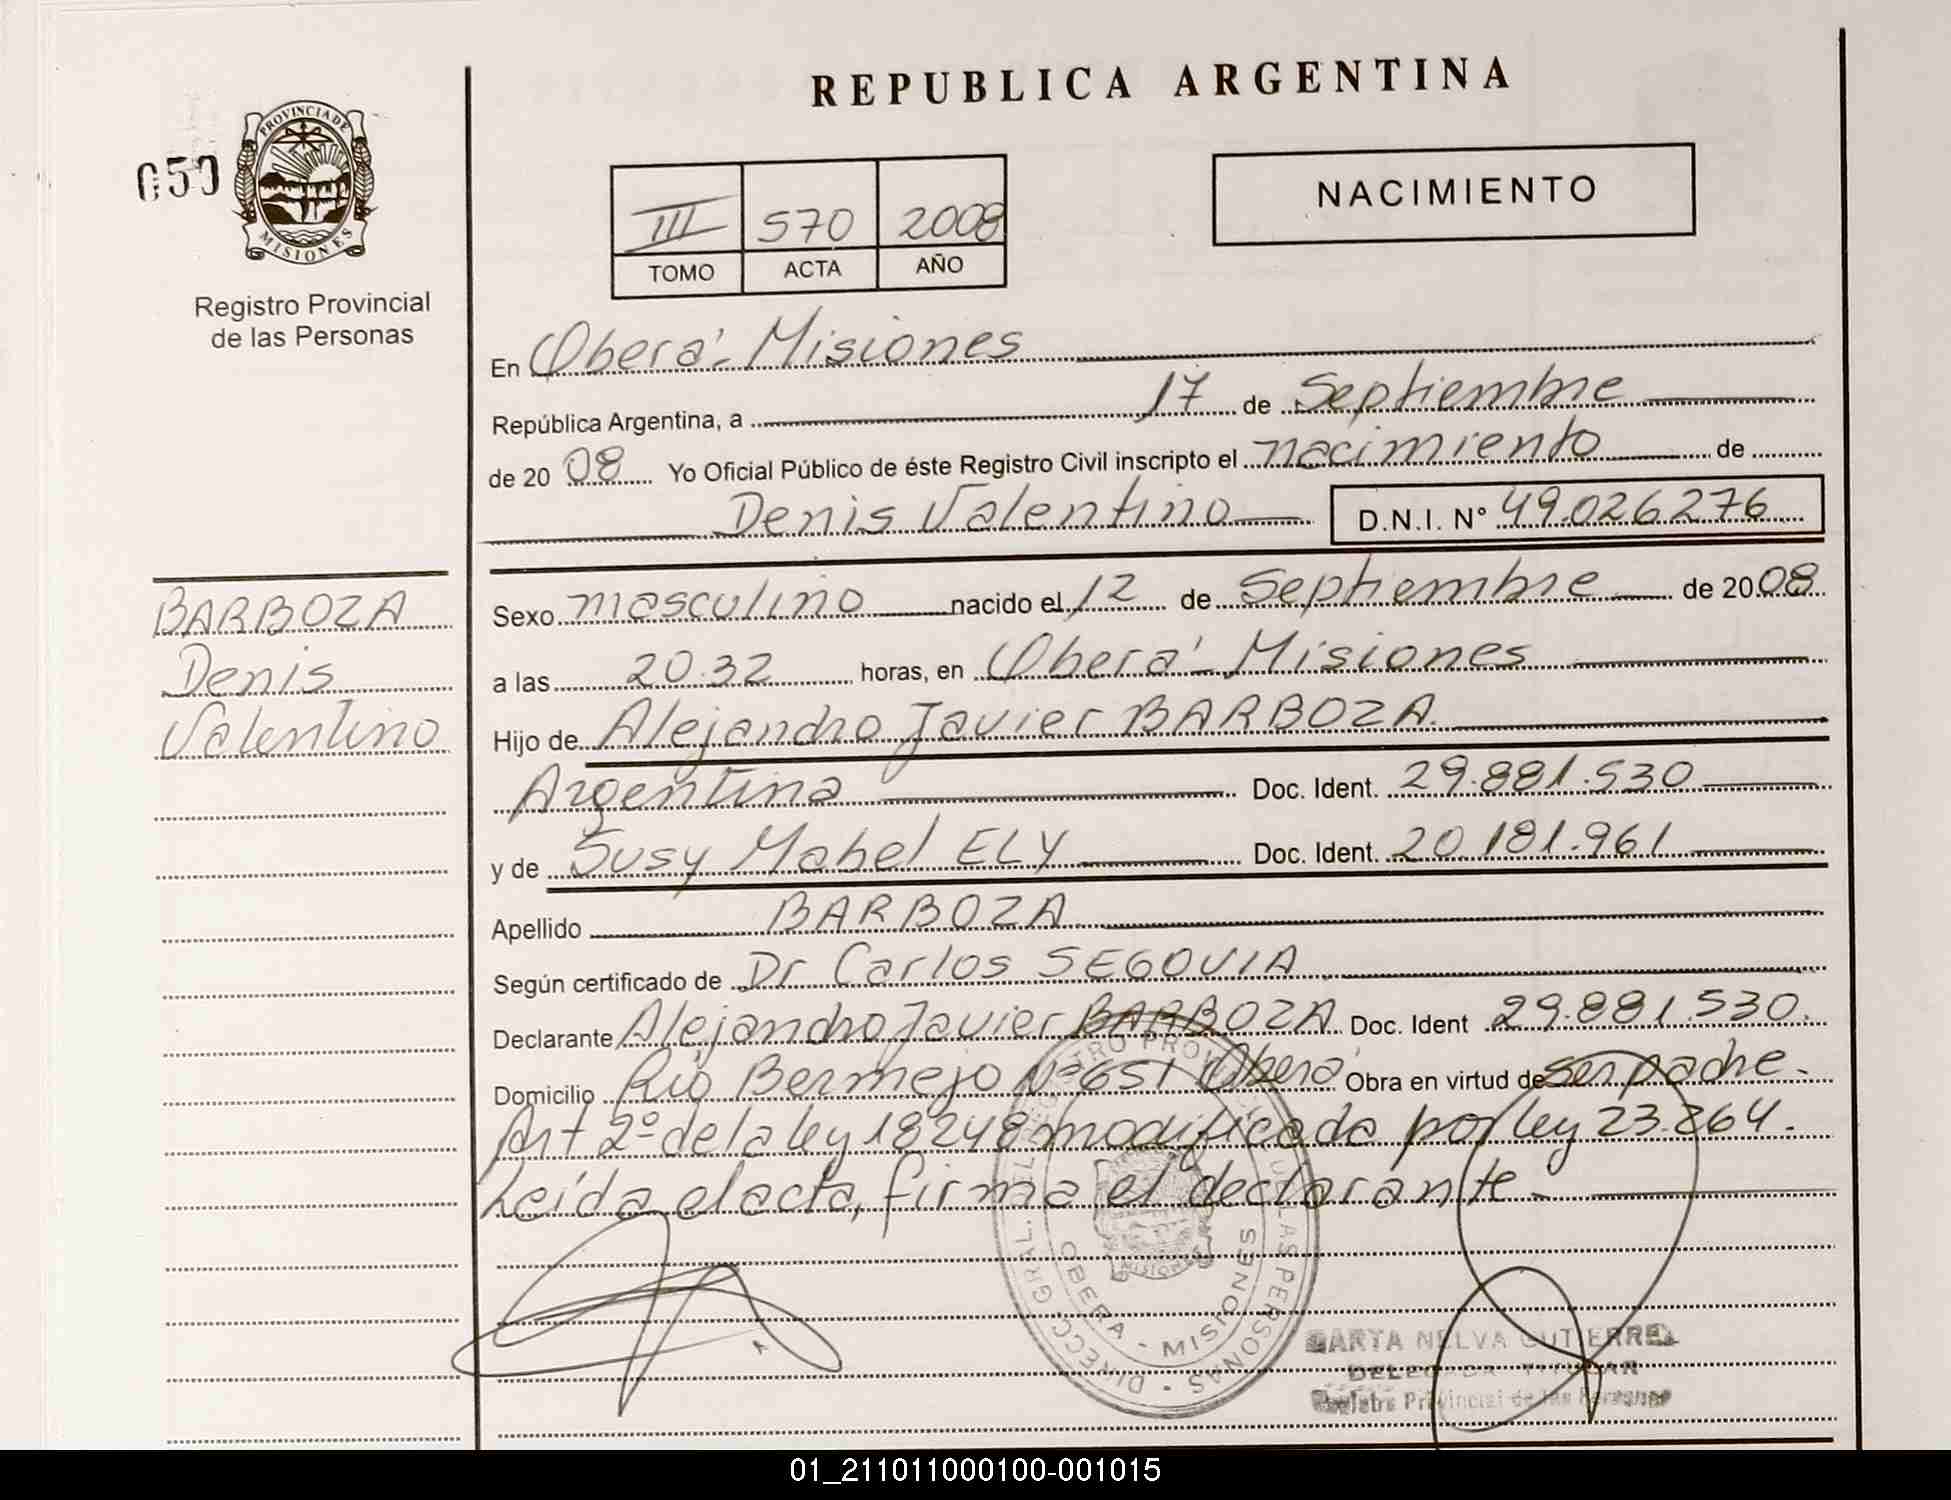 REPUBLICA ARGENTINA
PROVINCIA DE
MISIONES
050
Registro Provincial
de las Personas
III 570 2008
TOMO ACTA AÑO
NACIMIENTO
En Oberá - Misiones
República Argentina, a 17 de Septiembre
de 20 08 Yo Oficial Público de éste Registro Civil inscripto el nacimiento de
Denis Valentino D.N.I. N° 49.026.276
BARBOZA
Denis
Valentino
Sexo masculino nacido el 12 de Septiembre de 20 08
a las 20.32 horas, en Oberá - Misiones
Hijo de Alejandro Javier BARBOZA
Argentina Doc. Ident. 29.881.530
y de Susy Mabel ELY Doc. Ident. 20.181.961
Apellido BARBOZA
Según certificado de Dr Carlos SEGOVIA
Declarante Alejandro Javier BARBOZA Doc. Ident 29.881.530.
Domicilio Río Bermejo N° 651 Oberá Obra en virtud de ser padre.
Art 2º de la ley 18248 modificada por ley 23.264.
Leída el acta, firma el declarante -
DIRECC. GRAL. DEL REGISTRO PROVINCIAL DE LAS PERSONAS
OBERA - MISIONES
MISIONES
NELVA GUTIERREZ
DELEGADA TITULAR
Registro Provincial de las Personas
01_211011000100-001015